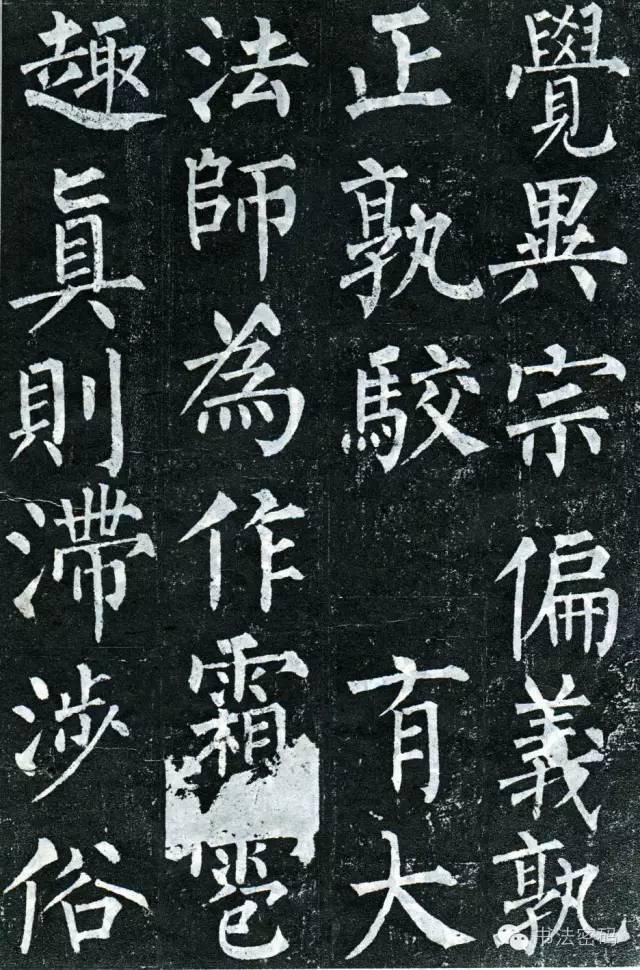 覺異宗偏義孰
正孰駮有大
法師為作霜雹
趣真則滯涉俗
书法密码